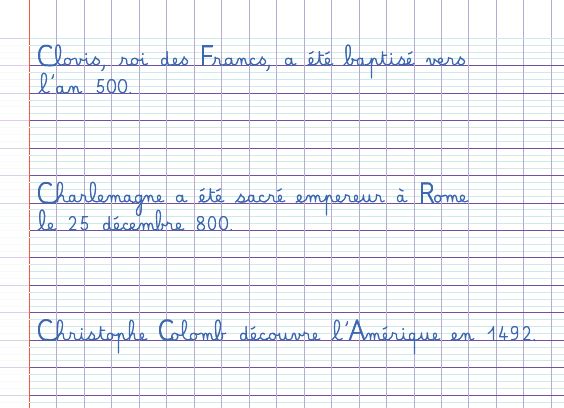 Clovis, roi des Francs, a été baptisé vers
l'an 500.
Charlemagne a été sacré empereur à Rome
le 25 décembre 800.
Christophe Colomb découvre l'Amérique en 1492.